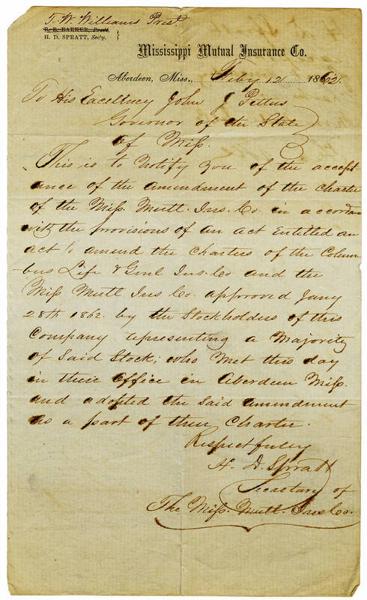 T. W. Williams Prest
R. E. BAKER, Prest.
H. D. SPRATT, Secy.
Mississippi Mutual Insurance Co.
Aberdeen, Miss., Feby 12 1862.
To His Exceltncy John J Pettus
Governor of the State
of Miss.
This is to Notify you of the accept
ance of the amendment of the Charter
of the Miss Mutl. Ins. Co. in accordan
with the provisions of an act Entitled an
act to amend the Charters of the Colum
bus Life & Genl Ins. Co and the
Miss Mutl Ins Co. approved Jany
28th 1862 by the Stockholders of this
Company representing a Majority
of Said Stock; who Met this day
in their Office in Aberdeen Miss
and adopted the said amendment
as a part of their Charter.
Respectfully
H. D. Spratt
Secretary of
The Miss. Mutl. Ins Co.